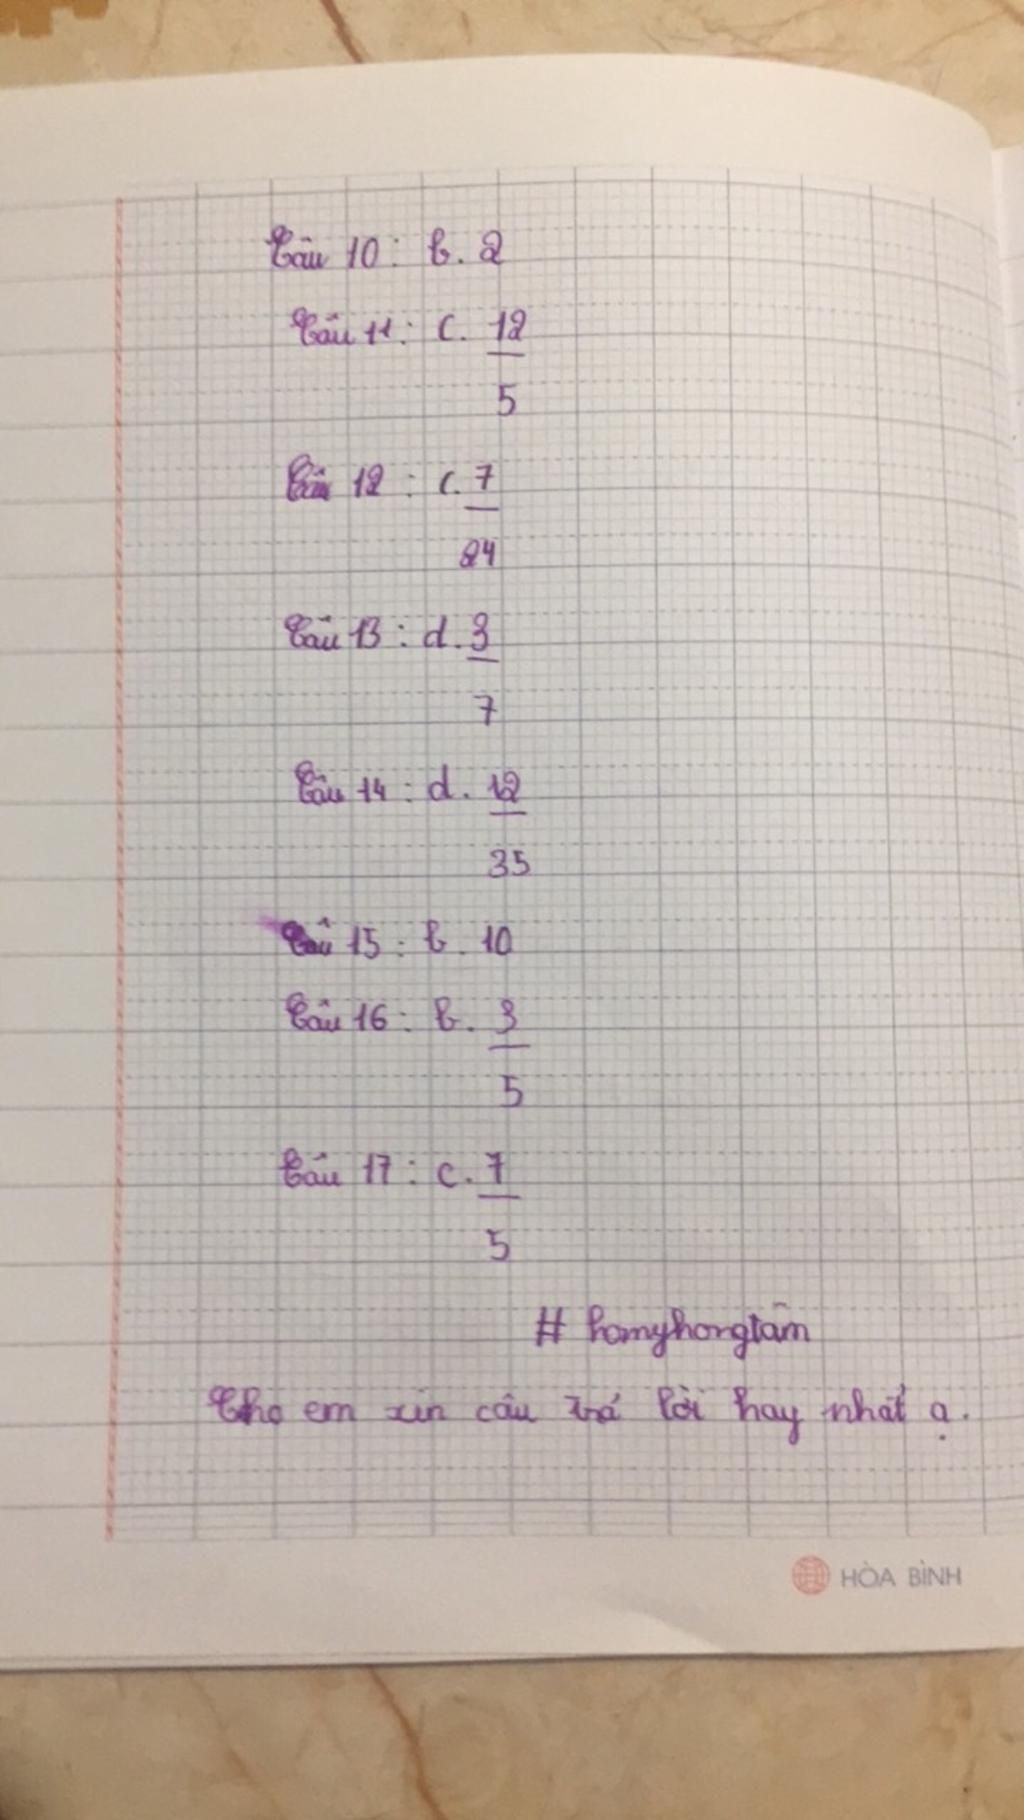 Câu 10: b. 2
Câu 11: c. 12
5
Câu 12: c. 7
24
Câu 13: d. 3
7
Câu 14: d. 12
35
Câu 15: b. 10
Câu 16: b. 3
5
Câu 17: c. 7
5
# hamyhongtam
Cho em xin câu trả lời hay nhất ạ.
HÒA BÌNH